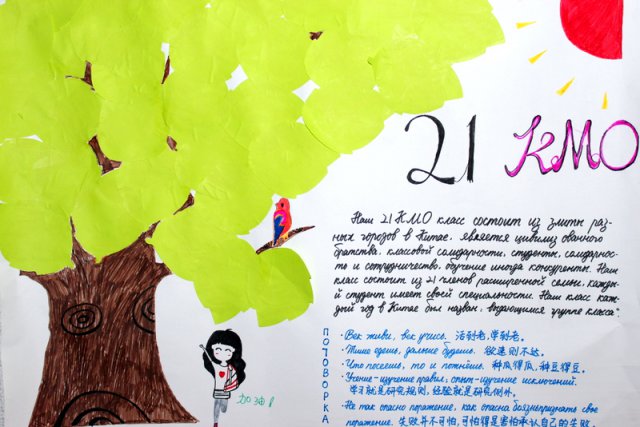 21 КМО
Наш 21 КМО класс состоит из элиты раз-
ных городов в Китае, является цивилизованного
братства, классовой солидарности, студенты, солидарнос-
то и сотрудничество, обучение иногда конкуренты. Наш
класс состоит из 21 членов расширенной семьи, кажды-
й студент имеет свой специальности. Наш класс каж-
дый год в Китае был назван „водающимся группе класса“.
ПОГОВОРКА
· Век живи, век учись. 活到老,学到老。
· Тише едешь, дальше будешь. 欲速则不达。
· Что посеешь, то и пожнёшь. 种瓜得瓜,种豆得豆。
· Учение-изучение правил, опыт-изучение исключений.
学习就是研究规则,经验就是研究例外。
· Не так опасно поражение, как опасна боязнь признать свое
поражение. 失败并不可怕,可怕得是害怕承认自己的失败。
加油!